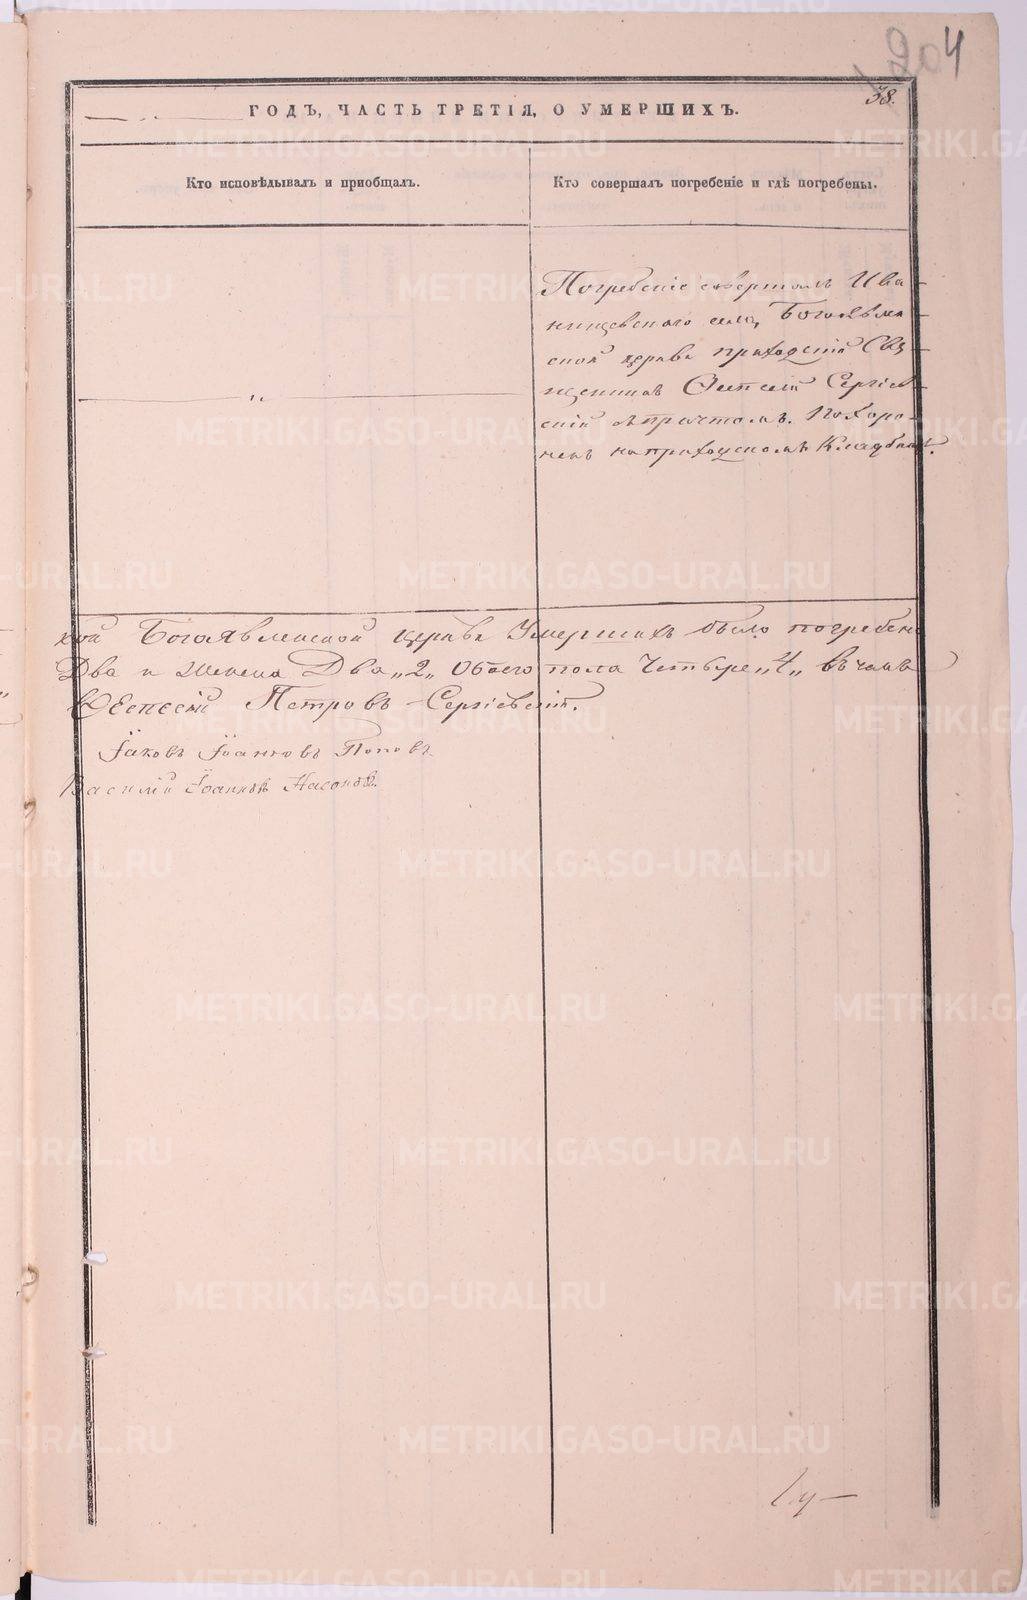 204
38.
ГОДЪ, ЧАСТЬ ТРЕТІЯ, О УМЕРШИХЪ.
Кто исповѣдывалъ и пріобщалъ.
Кто совершалъ погребеніе и гдѣ погребены.
Погребеніе совершалъ Ива-
нищевскаго села, Богоявлен-
ской церкви приходскій Свя-
щенникъ Сергіев-
скій съ причтомъ. Похоро-
ненъ на приходскомъ Кладбищѣ.
"
кой Богоявленской церкви Умершихъ было погребено
Два и Женска Два „2„ Обоего пола Четыре „4„ вѣ
Петровъ Сергіевскій.
Іаковъ Іоанновъ Поповъ
Василій Іоанновъ Насоновъ.
METRIKI.GASO-URAL.RU